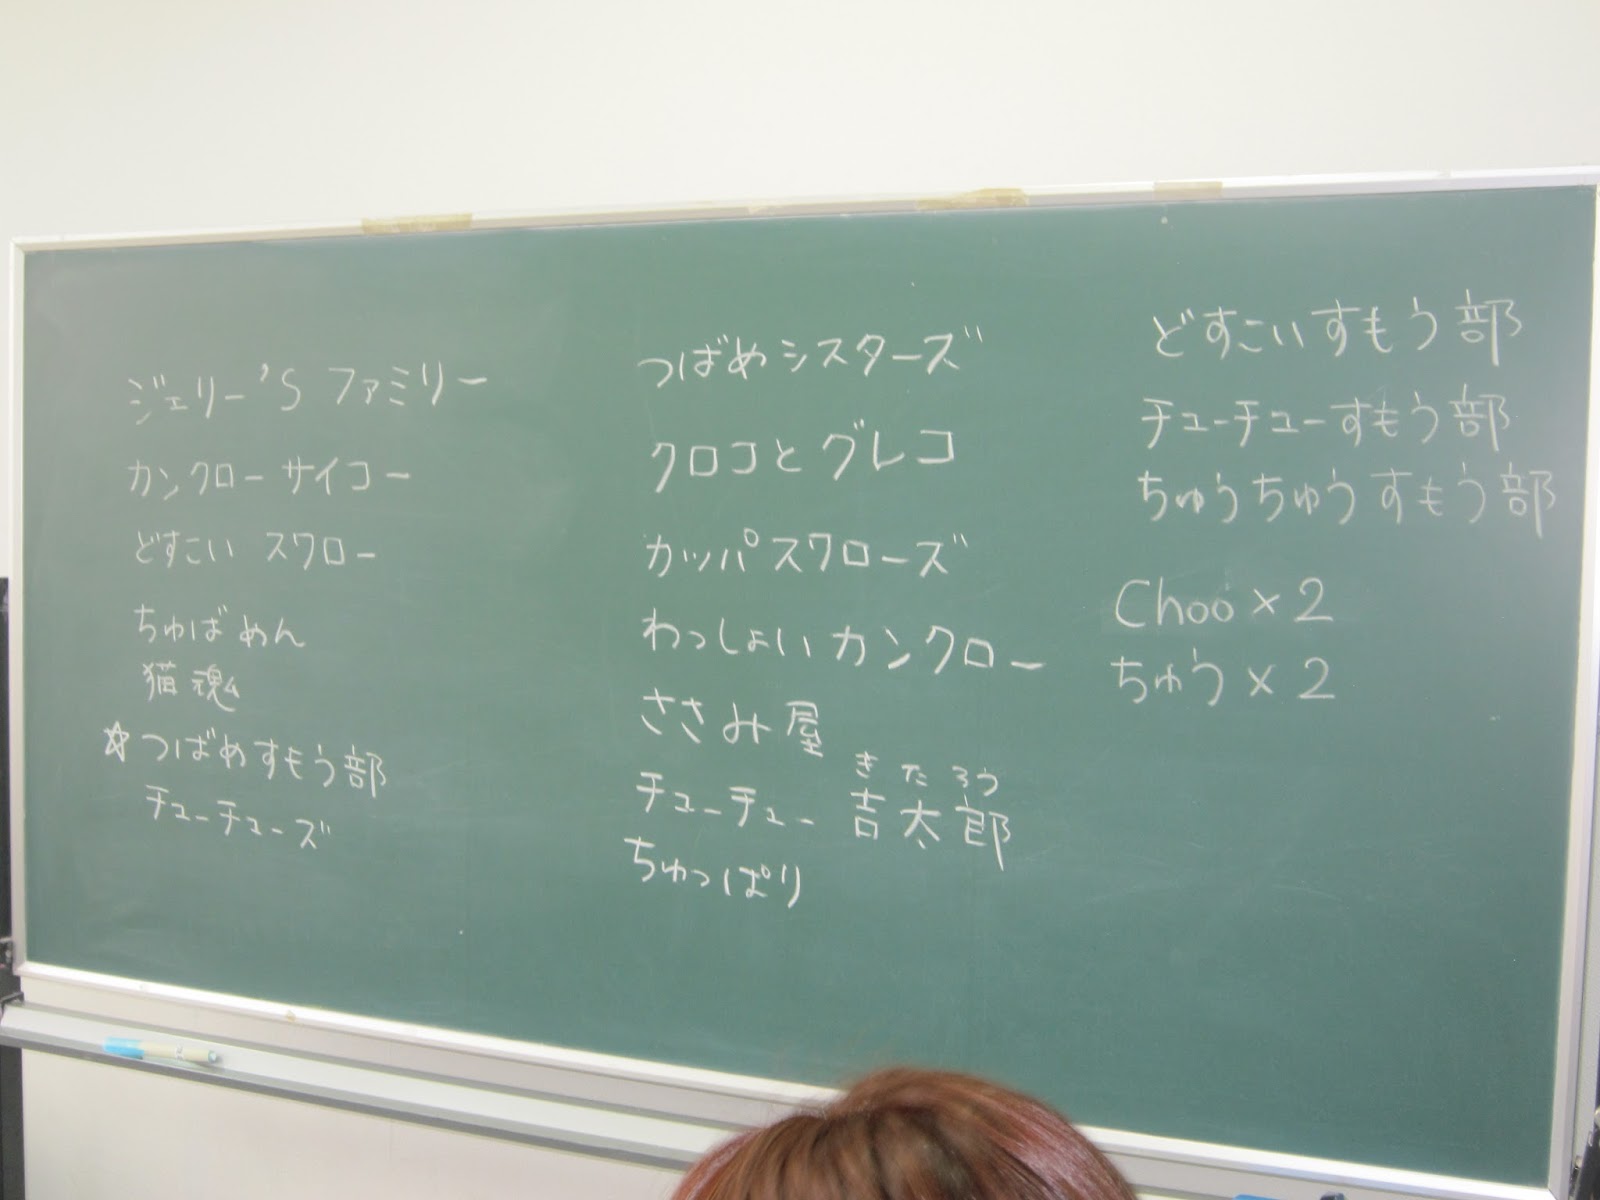 ジェリー'S ファミリー
カンクローサイコー
どすこい スワロー
ちゅばめん
猫魂
☆つばめすもう部
チューチューズ
つばめシスターズ
クロコとグレコ
カッパスワローズ
わっしょいカンクロー
ささみ屋
きたろう
チューチュー 吉太郎
ちゅっぱり
どすこいすもう部
チューチューすもう部
ちゅうちゅうすもう部
Choo×2
ちゅう×2